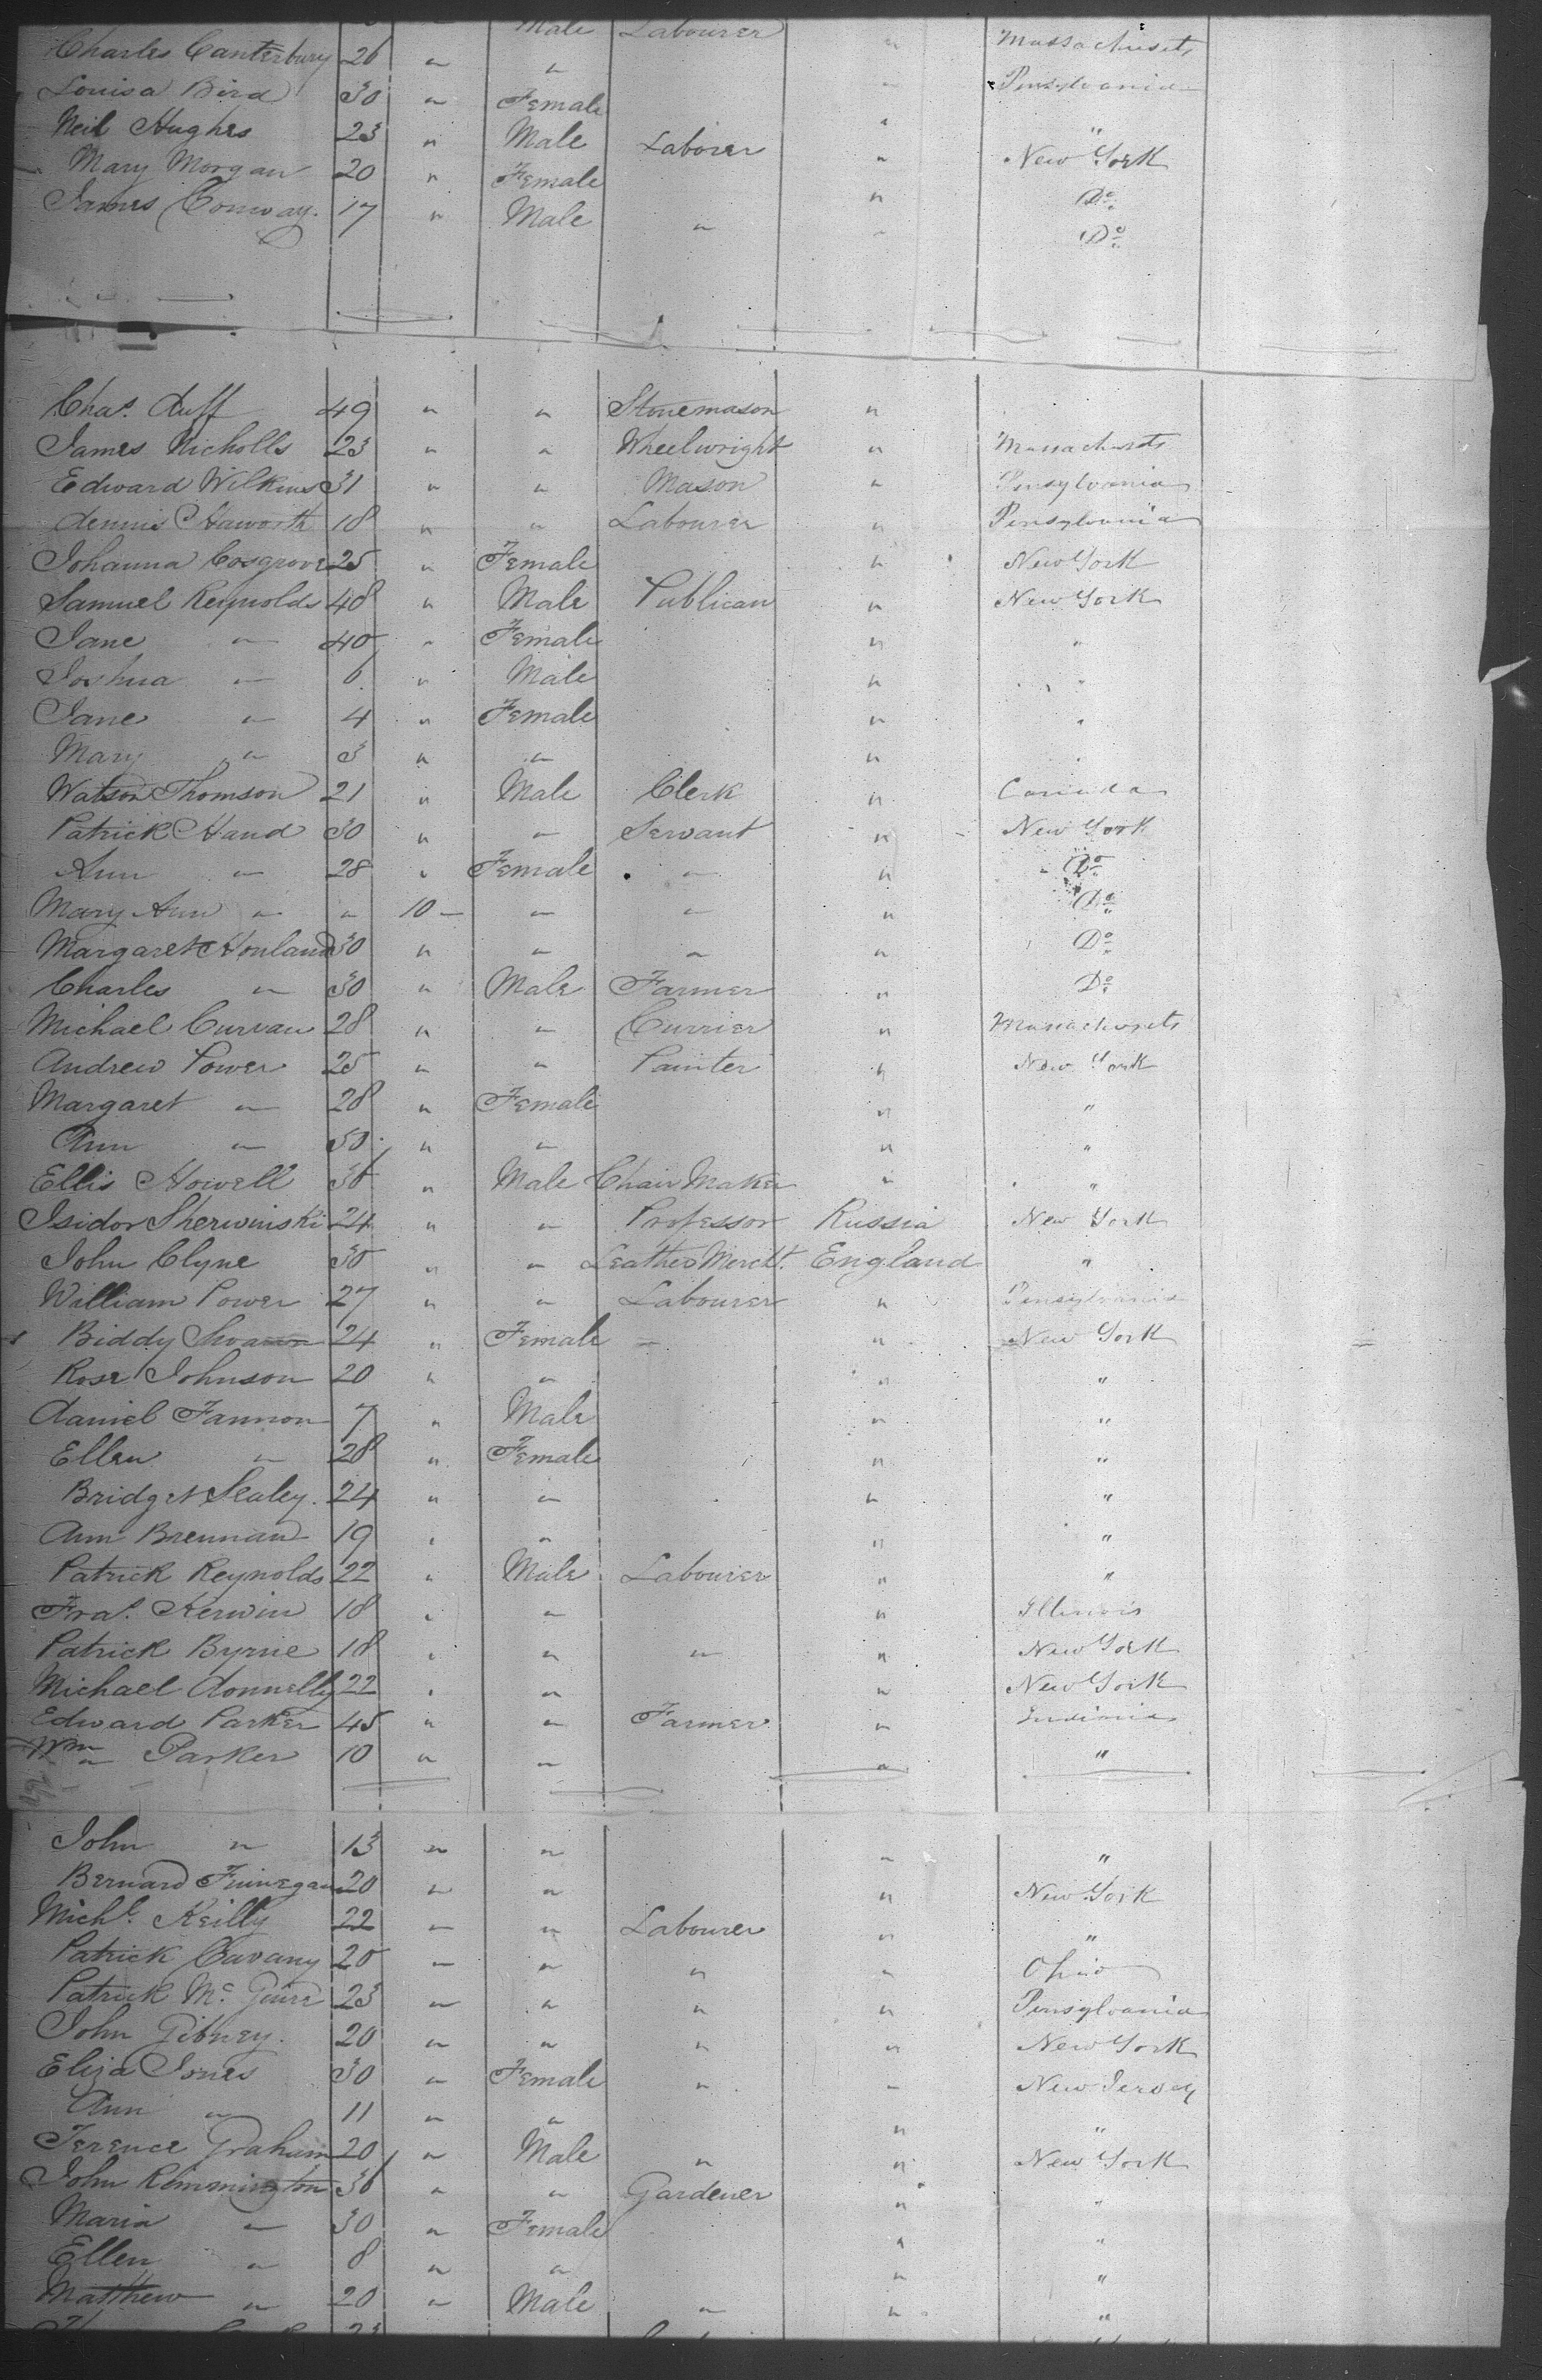 Male Labourer
Charles Canterbury 26 " " " Massachusets
Louisa Bird 30 " Female " Pensylvania
Neil Hughes 23 " Male Laborer " "
Mary Morgan 20 " Female " New York
James Conway 17 " Male " " Do
Do
Chas. Duff 49 " " Stonemason "
James Nicholls 23 " " Wheelwright " Massachusets
Edward Wilkins 31 " " Mason " Pensylvania
Dennis Haworth 18 " " Labourer " Pensylvania
Johanna Cosgrove 25 " Female " New York
Samuel Reynolds 48 " Male Publican " New York
Jane " 40 " Female " "
Joshua " 6 " Male " "
Jane " 4 " Female " "
Mary " 3 " " " "
Watson Thomson 21 " Male Clerk " Canada
Patrick Hand 30 " " Servant " New York
Ann " 28 " Female " " Do
Mary Ann " " 10 " " " Do
Margaret Honland 30 " " " " Do
Charles " 30 " Male Farmer " Do
Michael Curvan 28 " " Currier " Massachusets
Andrew Power 25 " " Painter " New York
Margaret " 28 " Female " "
Ann " 50 " " " "
Ellis Howell 36 " Male Chair Maker " "
Isidor Sherwinski 24 " " Professor Russia New York
John Clyne 30 " " Leather Mercht. England "
William Power 27 " " Labourer " Pensylvania
Biddy 24 " Female " " New York
Rose Johnson 20 " " " "
Daniel Fannon 7 " Male " "
Ellen " 28 " Female " "
Bridget Sealey 24 " " " "
Ann Brennan 19 " " " "
Patrick Reynolds 22 " Male Labourer " "
Fras. Kerwin 18 " " " Illinois
Patrick Byrne 18 " " " " New York
Michael Donnelly 22 " " " New York
Edward Parker 45 " " Farmer " Indiana
Wm " Parker 10 " " " "
John " 13 " " " "
Bernard Finnegan 20 " " " New York
Michl. Reilly 22 " " Labourer " "
Patrick Cavany 20 " " " " Ohio
Patrick Mc Guire 23 " " " " Pensylvania
John Gibney 20 " " " " New York
Eliza Jones 30 " Female " " New Jersey
Ann " 11 " " " "
Terence Graham 20 " Male " " New York
John Rimmington 36 " " Gardener " "
Maria " 30 " Female " "
Ellen " 8 " " " "
Matthew " 20 " Male " " "